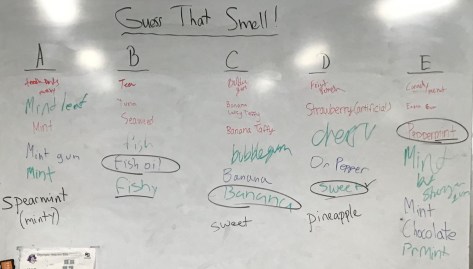 Guess That Smell!
A
Mint leaf
Mint
Mint gum
Mint
Spearmint
(minty)
B
Seaweed
fish
Fish oil
Fishy
C
Bubble
gum
Banana
Banana Taffy
bubblegum
Banana
Banana
sweet
D
Fruit
Strawberry (artificial)
cherry
Dr Pepper
Sweet
pineapple
E
Candy
Peppermint
Mint
but
gum
Mint
Chocolate
PrMint